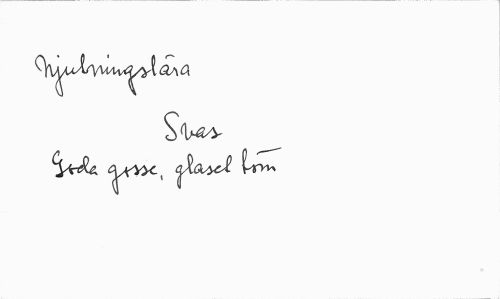 Njutningslära
Svas
Goda gosse, glaset töm̅